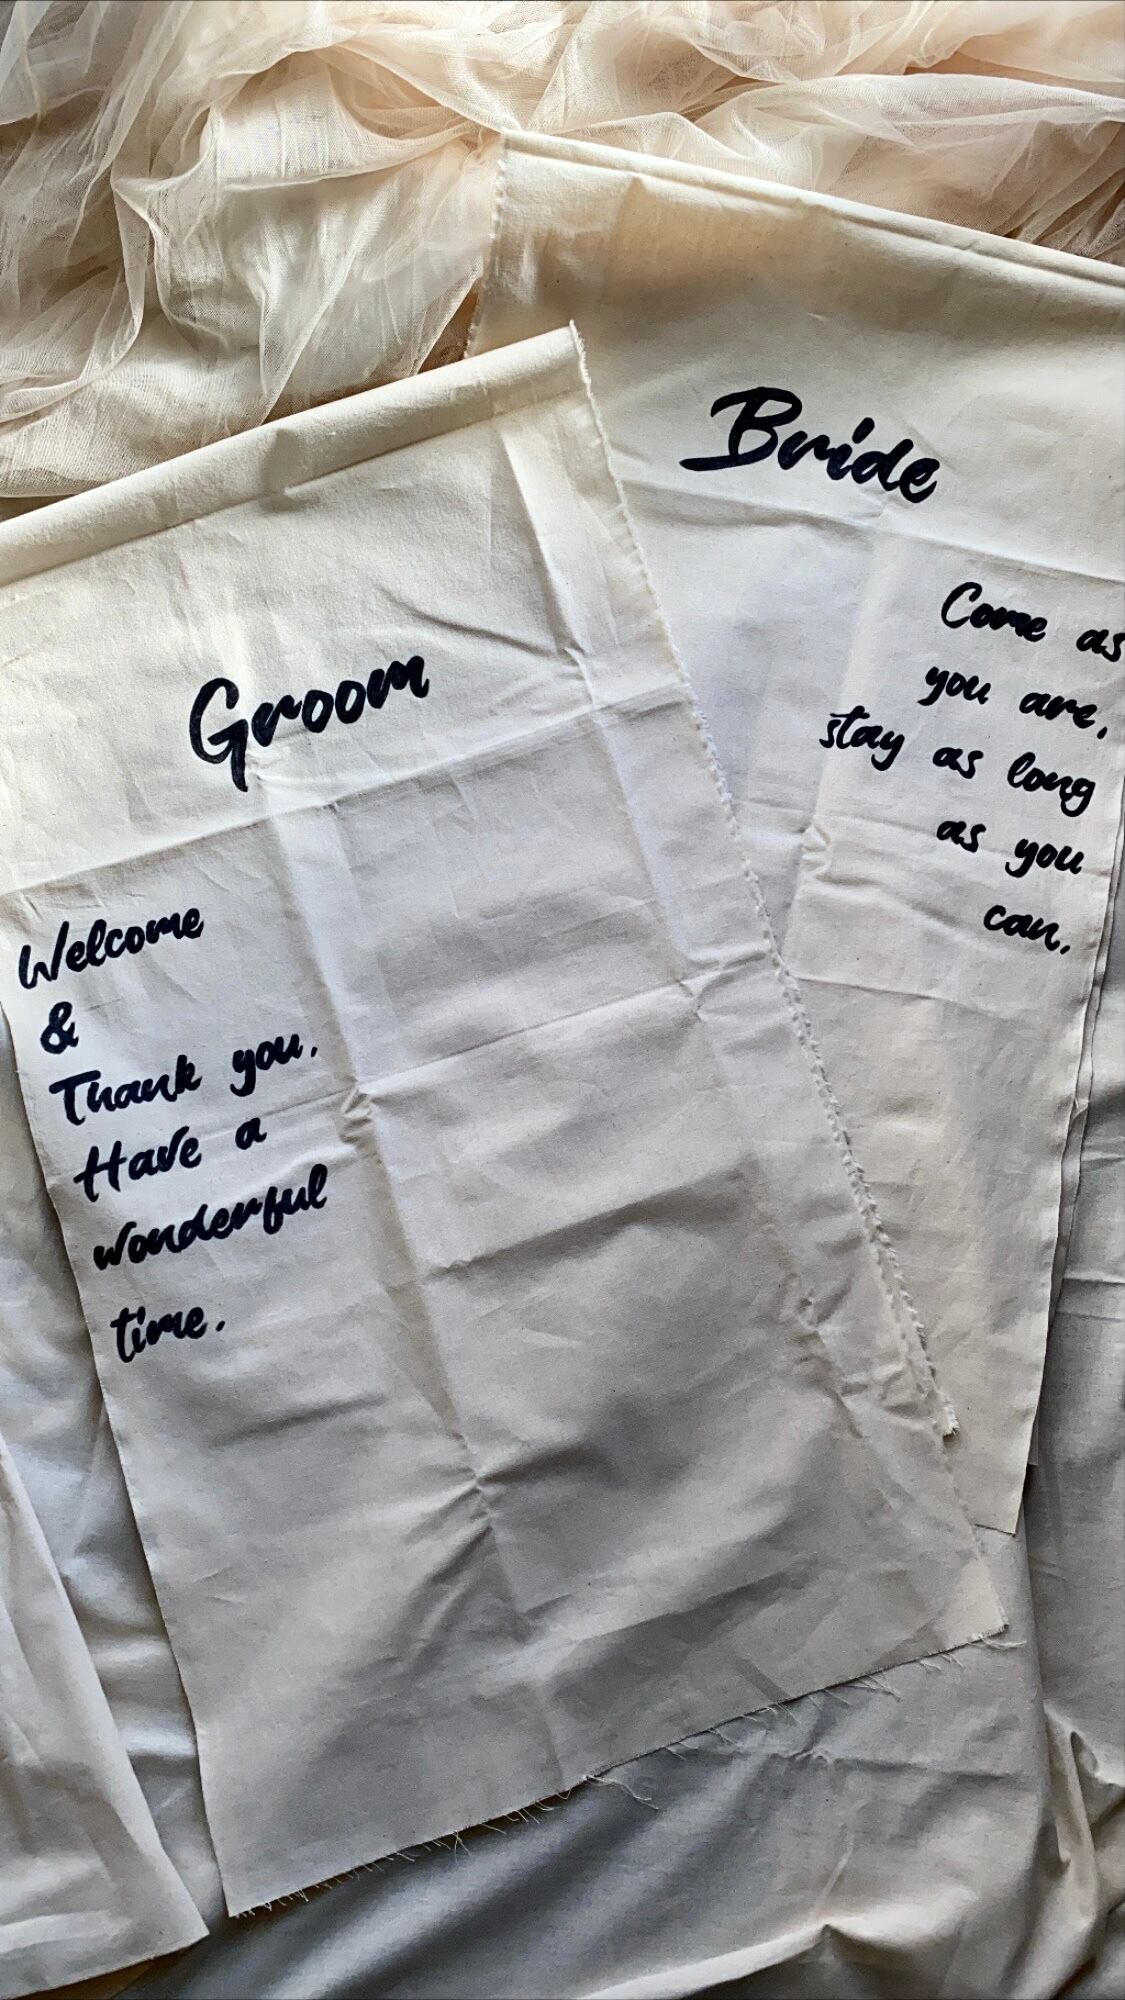 Groom
Welcome
&
Thank you.
Have a
wonderful
time.
Bride
Come as
you are,
stay as long
as you
can.